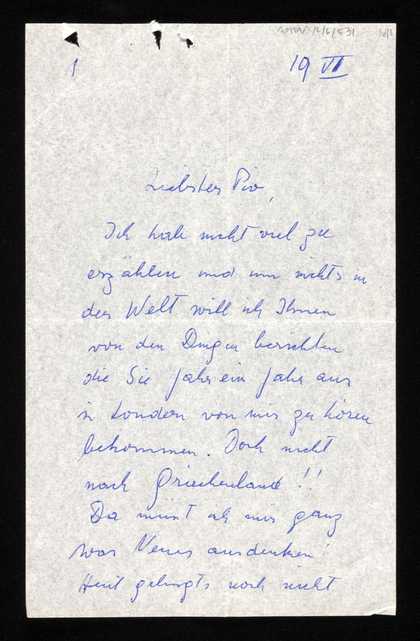 1
19 VI
Liebster Pio,
Ich habe nicht viel zu
erzählen und um nichts in
der Welt will ich Ihnen
von den Dingen berichten
die Sie Jahr ein Jahr aus
in London von mir zu hören
bekommen. Doch nicht
nach Griechenland!!
Da müsst ich mir ganz
was Neues ausdenken!
Heut gelingts noch nicht